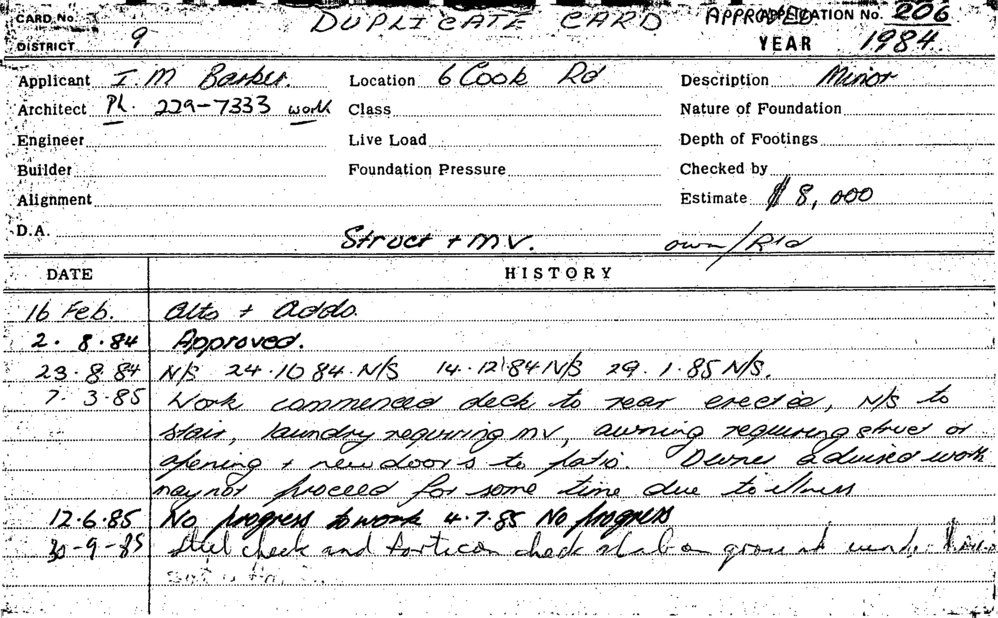 CARD No. DUPLICATE CARD APPROVED APPLICATION No. 206
DISTRICT 9 YEAR 1984
Applicant I. M Barber. Location 6 Cook Rd Description Minor
Architect Ph. 229-7333 work Class Nature of Foundation
Engineer Live Load Depth of Footings
Builder Foundation Pressure Checked by
Alignment Estimate $8,000
D.A. Struct + M V. own/Rtd
DATE HISTORY
16 Feb. Alts + Adds.
2. 8. 84 Approved.
23. 8. 84 N/S 24. 10 84. N/S 14. 12 84 N/S 29. 1. 85 N/S.
7. 3. 85 Work commenced deck to rear erected, N/S to
stair, laundry requiring mv, awning requiring struct or
opening + new doors to patio. Owner advised work
may not proceed for some time due to illness
12. 6. 85 No progress to work 4. 7. 85 No progress
30-9-85 Steel check and check slab on ground